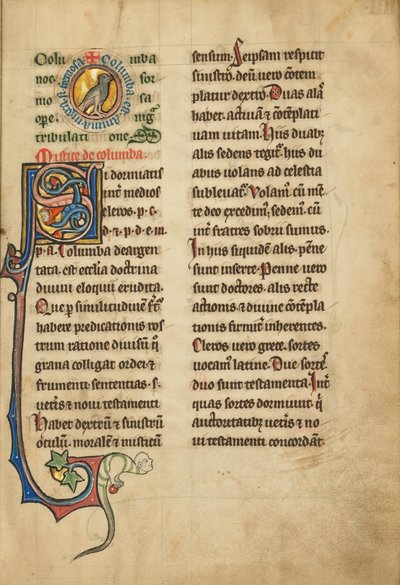 Colu mba
nos for
mo sa
ope nig
tribulati one
Mistice de columba.
Si dormiatis
int̄ medios
cleros. p. c.
d. ⁊ p. d. e. in
p. a. Columba deargen
tata. est ecclīa doctrina
diuini eloquii erudita.
Que p̄ similitudinē fr̄t
habere predicationis ros
trum ratione diuisū. q̄
grana colligat ordei ⁊
frumenti. sententias. s.
uet̄is ⁊ noui testamenti
Habet dextrū ⁊ sinistrū
oculū. moralē ⁊ misticū
sensum. Seipsam respicit
sinistro. deū uero cōtem
platur dextro. Duas alas
habet. actiuā ⁊ cōtēplati
uam uitam. Hiis duab⁹
alis sedens tegit̄. hiis du
abus uolans ad celestia
subleuat̄. Volam⁹. cū mē
te deo excedim⁹. sedem⁹. cū
int̄ fratres sobrii sumus.
In hiis siquidē alis. pēne
sunt inserte. Penne uero
sunt doctores. alis recte
actionis ⁊ diuine cōtēpla
tionis firmit̄ inherentes.
Cleros uero grece. sortes
uocam⁹ latine. Due sortes
duo sunt testamenta. Int̄
quas sortes dormiūt. q̄
auctoritatib⁹ uet̄is ⁊ no
ui testamenti concordāt.